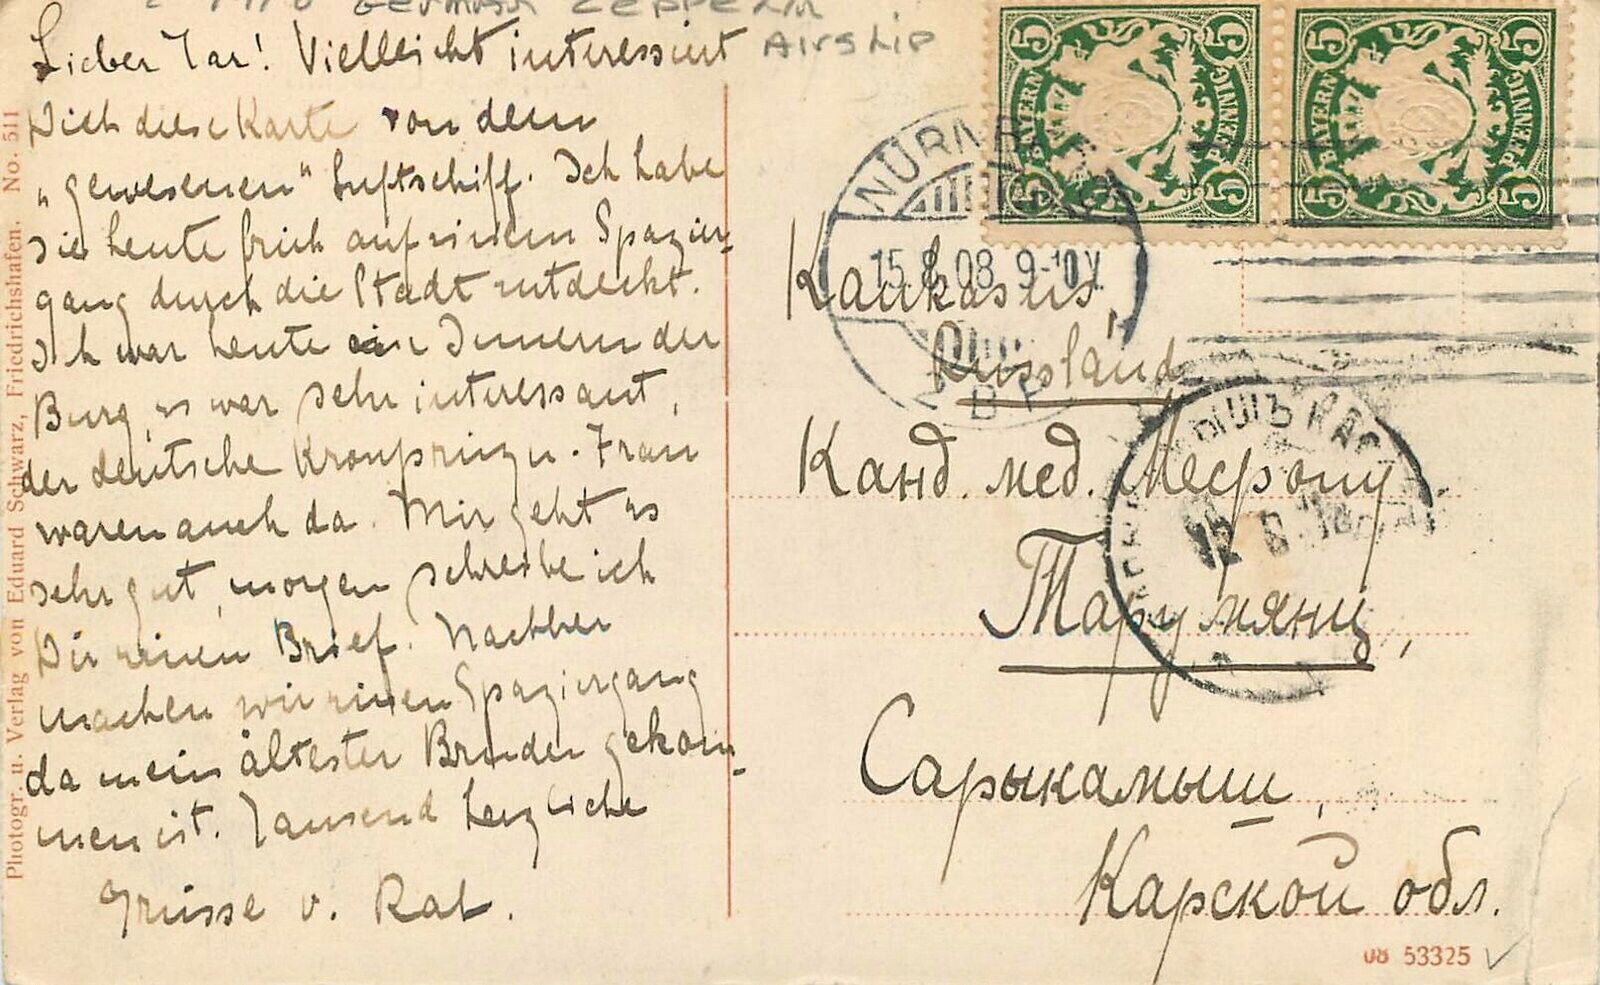 GERMAN ZEPPELIN
AIRSHIP
Lieber Tar! Vielleicht interessiert
Dich diese Karte von dem
„gewesenen" Luftschiff. Ich habe
sie heute früh auf einem Spazier-
gang durch die Stadt entdeckt.
Ich war heute im Innern der
Burg, es war sehr interessant,
der deutsche Kronprinz u. Frau
waren auch da. Mir geht es
sehr gut, morgen schreibe ich
Dir einen Brief. Nachher
machen wir einen Spaziergang
da mein ältester Bruder gekom-
men ist. Tausend herzliche
Grüsse v. Rat.
Photogr. u. Verlag von Eduard Schwarz, Friedrichshafen. No. 511
5 5 5 5
BAYERN PFENNIG
5 5 5 5
BAYERN PFENNIG
NÜRNB
15.8.08 9-10V
Kaukasus,
Russland
Канд. мед. Месропу
Тарумянц,
Сарыкамыш,
Карской обл.
МЫШЪ КАРС
08 53325